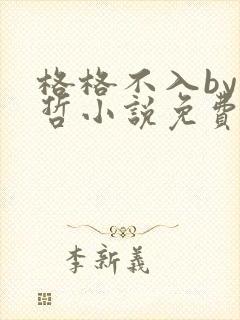 格格不入by
哲小說免費
李新義